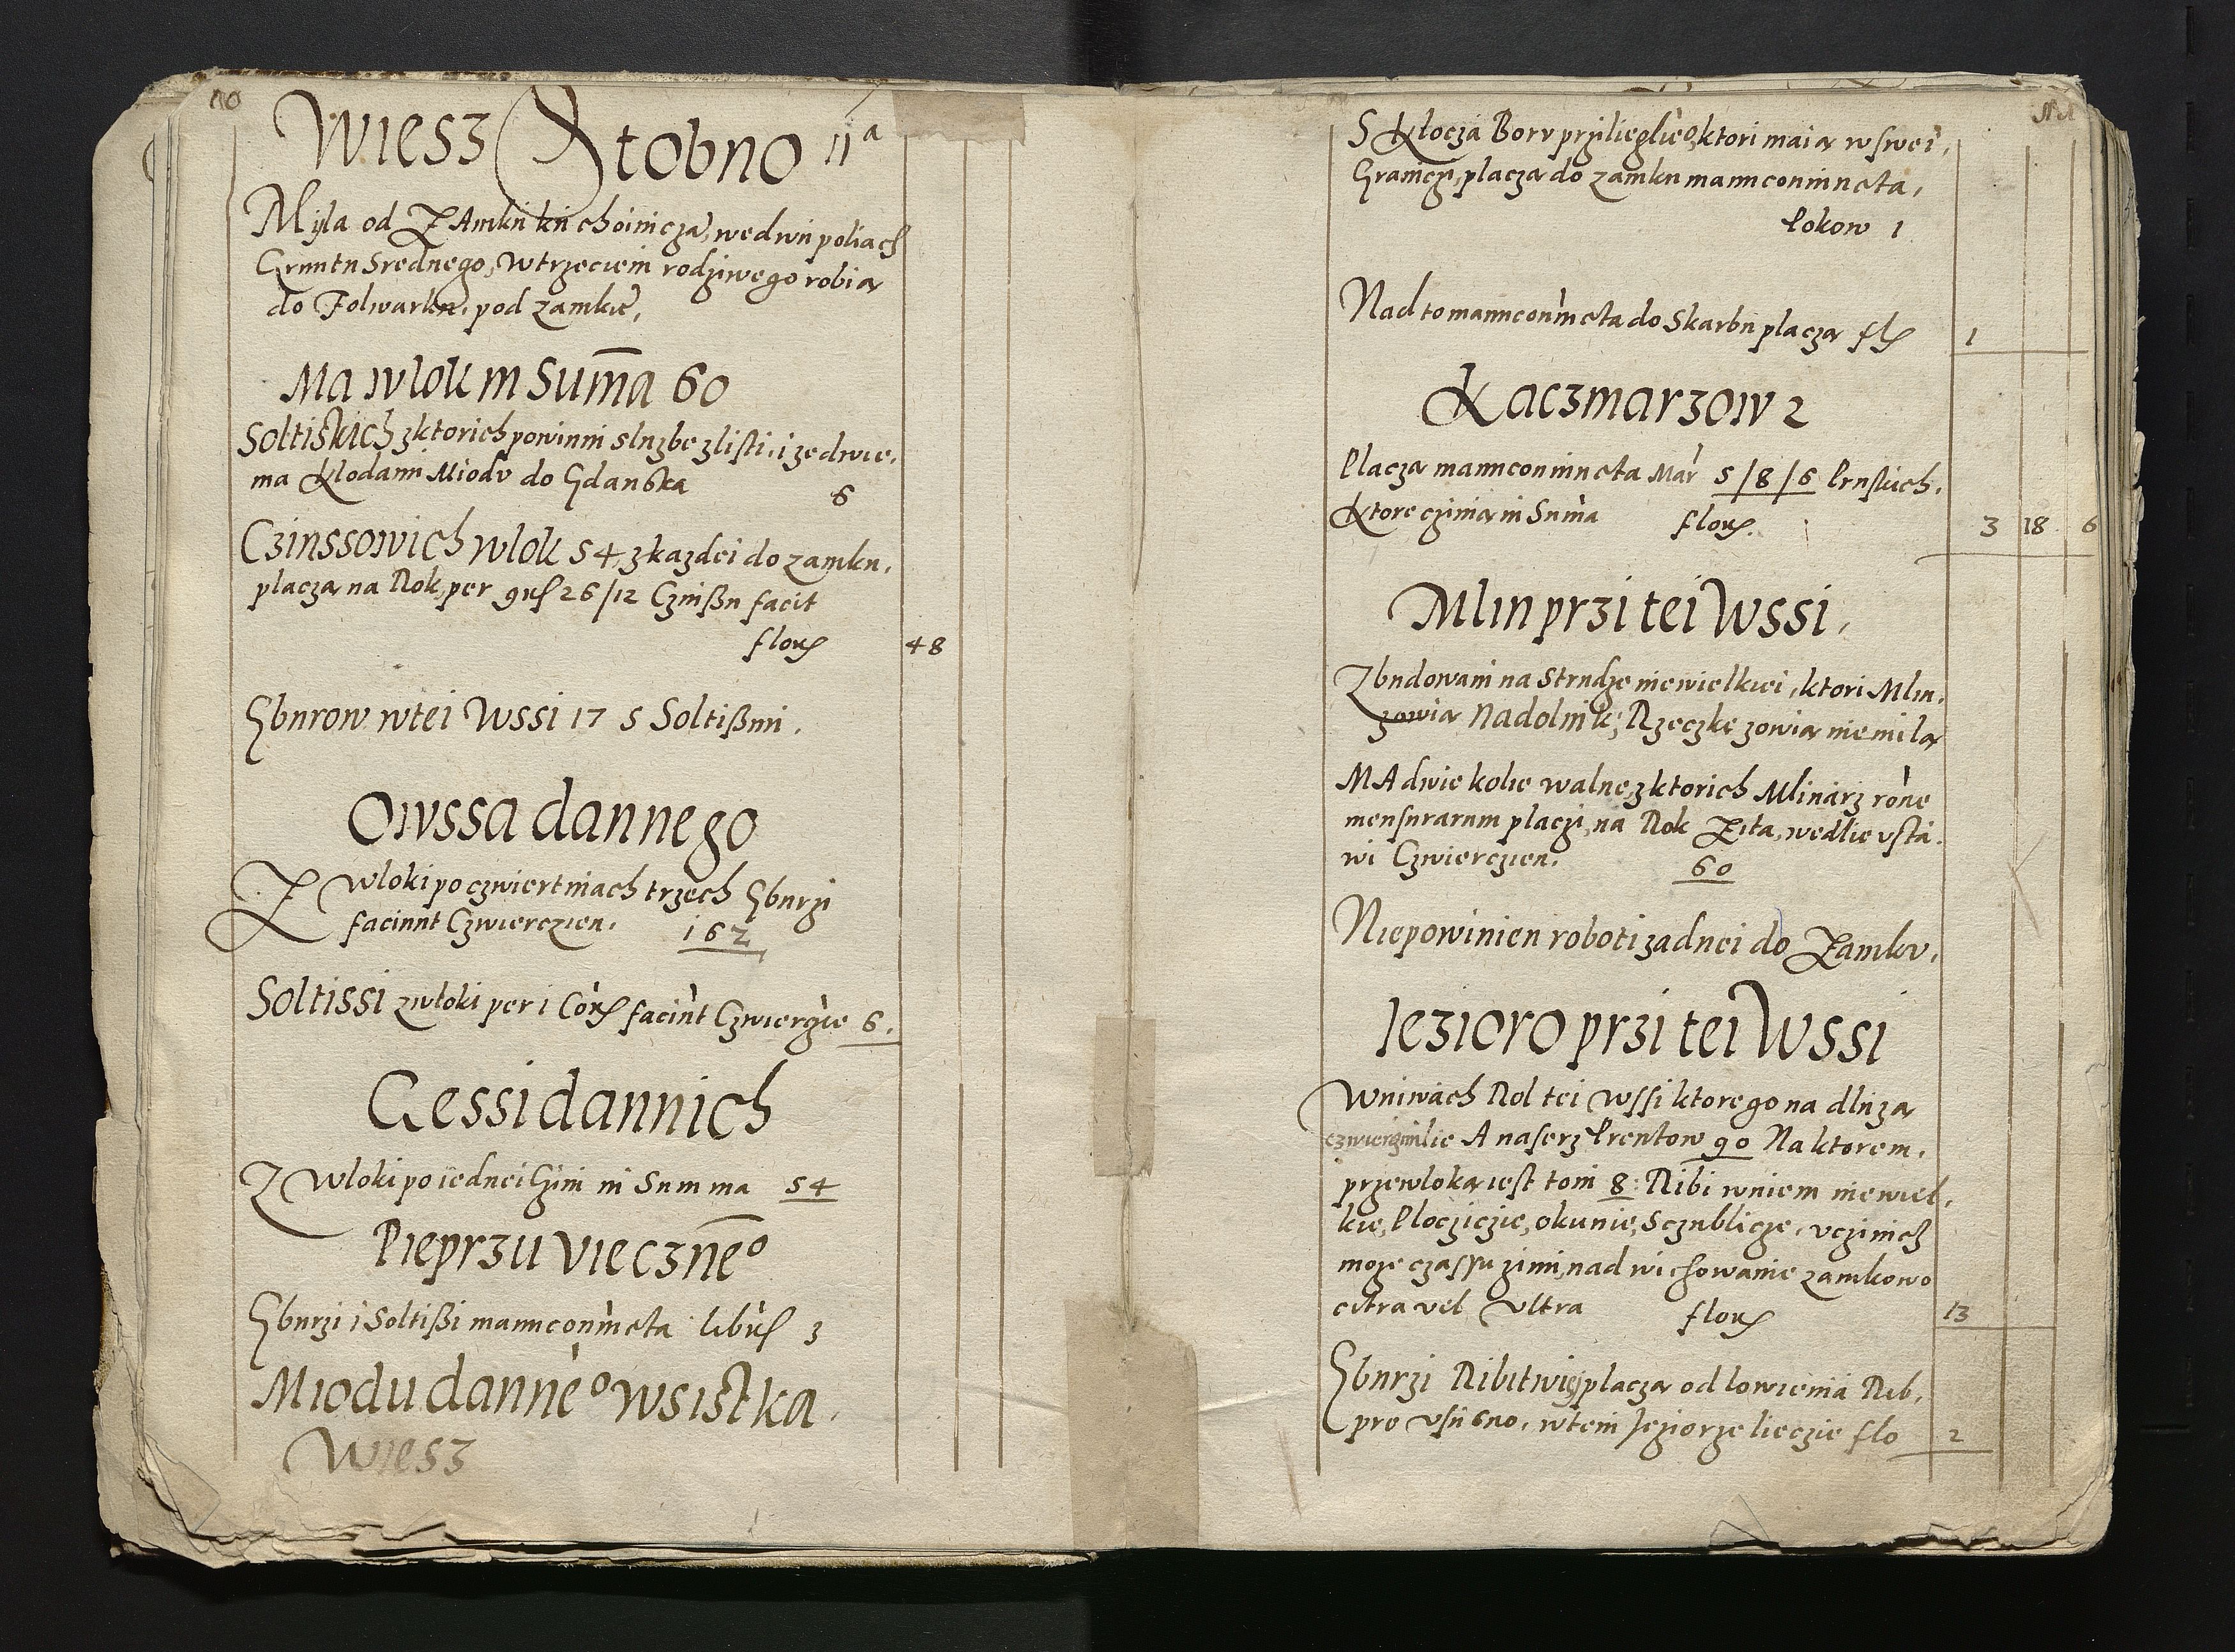 110
Wiesz Stobno 11a
Myla od ZAmku ku choiniczą, wedwu poliach
Gruntu Srednego, Wtrzeciem rodziwego robią
do Folwarku. pod zamkie,
Ma wlok in Suma 60
Soltiskich zktorich powinni sluzbe zlisti. i ze dwie.
ma Klodami Miodv do Gdanska 6
Czinssowich wlok 54, zkazdei do zamku.
placzą na Rok, per gros 26/12 Czinßu facit
flor 48
Gburow wtei Wssi 17 s Soltißmi.
Owssa dannego
Z wloki po czwiertniach trzech Gburzi
faciunt Czwierczien. 162
Soltissi zwloki per 1 Cor faciut Czwierczie 6.
Gessi dannich
Z Wloki po iednei Czini in Summa 54
Pieprzu vieczneo
Gburzi i Soltißi manu coniuncta libr 3
Miodu danneo wsistka.
Wiesz
111
S Kłoczą Borv prziliegłieo, ktori maią w swei.
Graniczi, placzą do zamku manu coniuncta,
Rokow 1
Nad to manu coniuncta do Skarbu placzą fl 1
Kaczmarzow 2
Placzą manu coniuncta Mar 5/8/6 Pruskich.
Ktore czinią in Suma flor. 3 18 6
Mlin przi tei Wssi,
Zbudowani na Strudze niewielkiei, ktori Mlin.
zowią Nadolnik; Rzeczke zowią niemilą
MA dwie kolie walne, zktorich Mlinarz rone
mensurarum placzi, na Rok Zita, wedlie vsta.
wi Czwierczien. 60
Niepowinien roboti zadnei do Zamkv,
Iezioro przi tei Wssi
Wniwach Rol tei Wssi ktorego na dluzą
czwierzmilie A naserz Prentow 90 Na ktorem.
przewloka iest toni 8: Ribi wniem niewiel.
kie, Ploczicze, okunie, Sczublicze, vczinicz
moze czassu zimi, nad wichowanie zamkowo
citra vel Vltra flor 13
Gburzi Ribitwi placzą od lowienia Rib,
pro vsu 6no. wtem Jeziorze lieczie flo 2